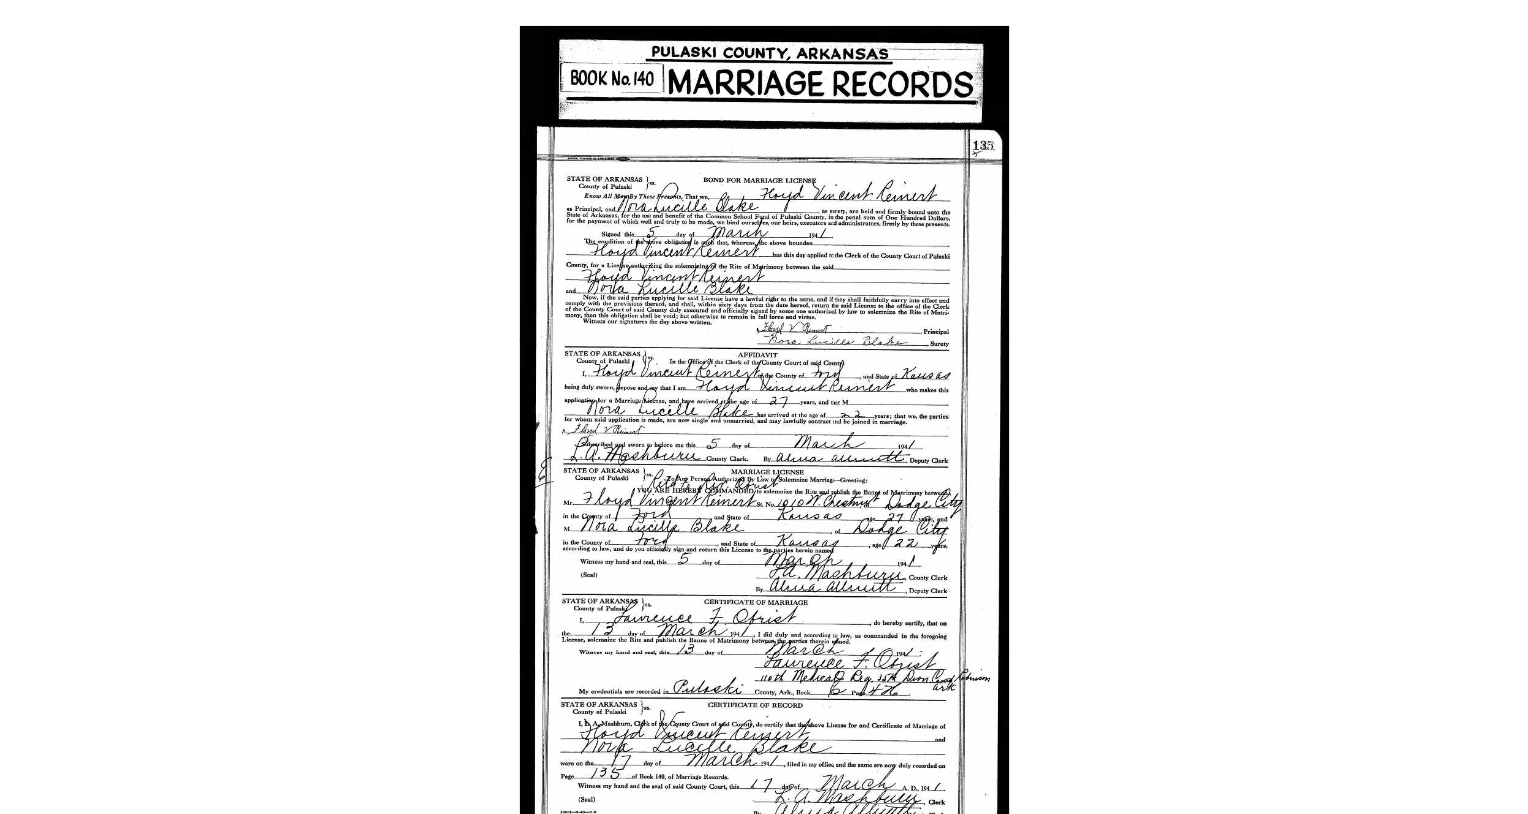 PULASKI COUNTY, ARKANSAS
BOOK No. 140 MARRIAGE RECORDS
135
STATE OF ARKANSAS } ss. BOND FOR MARRIAGE LICENSE
County of Pulaski
Know All Men By These Presents, That we, Floyd Vincent Reinert
as Principal, and Nora Lucille Blake as surety, are held and firmly bound unto the
State of Arkansas, for the use and benefit of the Common School Fund of Pulaski County, in the penal sum of One Hundred Dollars,
for the payment of which well and truly to be made, we bind ourselves, our heirs, executors and administrators, firmly by these presents.
Signed this 5 day of March 1941
The condition of the above obligation is such that, whereas, the above bounden
Floyd Vincent Reinert has this day applied to the Clerk of the County Court of Pulaski
County, for a License authorizing the solemnizing of the Rite of Matrimony between the said
Floyd Vincent Reinert
and Nora Lucille Blake
Now, if the said parties applying for said License have a lawful right to the same, and if they shall faithfully carry into effect and
comply with the provisions thereof, and shall, within sixty days from the date hereof, return the said License to the office of the Clerk
of the County Court of said County duly executed and officially signed by some one authorized by law to solemnize the Rite of Matri-
mony, then this obligation shall be void; but otherwise to remain in full force and virtue.
Witness our signatures the day above written.
Floyd V Reinert Principal
Nora Lucille Blake, Surety
STATE OF ARKANSAS } ss. AFFIDAVIT
County of Pulaski In the Office of the Clerk of the County Court of said County
I, Floyd Vincent Reinert of the County of Ford, and State of Kansas
being duly sworn, depose and say that I am Floyd Vincent Reinert who makes this
application for a Marriage License, and have arrived at the age of 27 years, and that M
Nora Lucille Blake has arrived at the age of 22 years; that we, the parties
for whom said application is made, are now single and unmarried, and may lawfully contract and be joined in marriage.
x Floyd V Reinert
Subscribed and sworn to before me this 5 day of March 1941
L. A. Mashburn County Clerk. By Deputy Clerk
STATE OF ARKANSAS } ss. MARRIAGE LICENSE
County of Pulaski To Any Person Authorized By Law to Solemnize Marriage—Greeting:
YOU ARE HEREBY COMMANDED to solemnize the Rite and publish the Banns of Matrimony between
Mr. Floyd Vincent Reinert St. No. 1010 W Chestnut Dodge City
in the County of Ford and State of Kansas age 27 years, and
M Nora Lucille Blake of Dodge City
in the County of Ford and State of Kansas, age 22 years,
according to law, and do you officially sign and return this License to the parties herein named.
Witness my hand and seal, this 5 day of March 1941
(Seal) L. A. Mashburn, County Clerk
By, Deputy Clerk
STATE OF ARKANSAS } ss. CERTIFICATE OF MARRIAGE
County of Pulaski
I, Lawrence F. Obrist, do hereby certify, that on
the 13 day of March 1941, I did duly and according to law, as commanded in the foregoing
License, solemnize the Rite and publish the Banns of Matrimony between the parties therein named.
Witness my hand and seal, this 13 day of March 1941
Lawrence F. Obrist
110th Medical Reg. 35th Divn Camp Robinson
Ark
My credentials are recorded in Pulaski County, Ark., Book 6 Page
STATE OF ARKANSAS } ss. CERTIFICATE OF RECORD
County of Pulaski
I, L. A. Mashburn, Clerk of the County Court of said County, do certify that the above License for and Certificate of Marriage of
Floyd Vincent Reinert and
Nora Lucille Blake
were on the 17 day of March 1941, filed in my office, and the same are now duly recorded on
Page 135 of Book 140, of Marriage Records.
Witness my hand and the seal of said County Court, this 17 day of March A. D., 1941
(Seal) L. A. Mashburn, Clerk
By